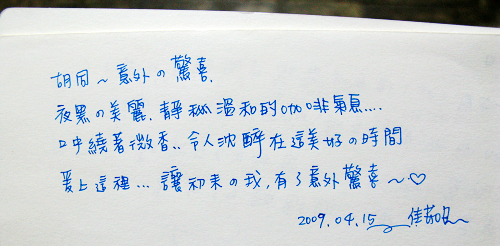 胡同～意外の驚喜.
夜黑の美麗.靜 溫和的咖啡氣息....
口中繞著微香..令人沈醉在這美好の時間
愛上這裡...讓初來の我,有了意外驚喜～♡
2009.04.15 佳